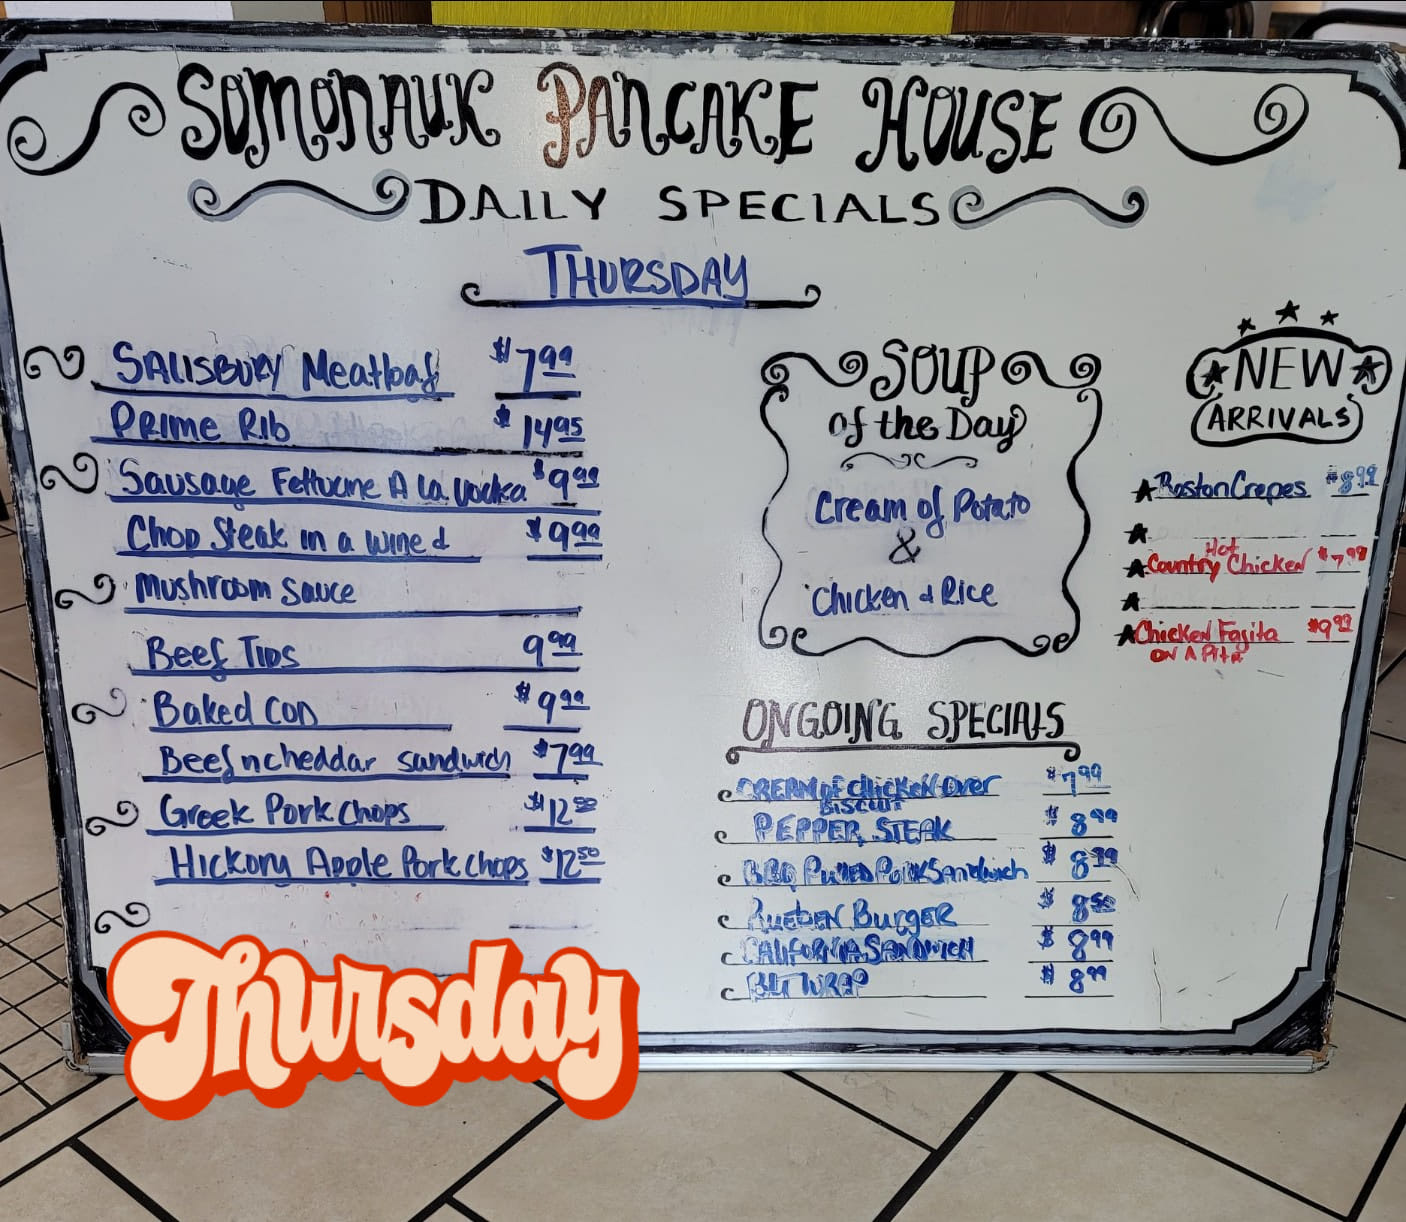 SOMONAUK PANCAKE HOUSE
DAILY SPECIALS
THURSDAY
SALISBURY Meatloaf $7.99
PRIME RIb $14.95
Sausage Fettucine A La Vodka $9.99
Chop Steak in a wine & $9.99
mushroom Sauce
Beef Tips 9.99
Baked Cod $9.99
Beef n cheddar sandwich $7.99
Greek Pork Chops $12.50
Hickory Apple Pork chops $12.50
SOUP
of the Day
Cream of Potato
&
Chicken & Rice
NEW
ARRIVALS
Boston Crepes $8.99
Hot
Country Chicken $7.99
Chicken Fajita $9.99
ON A Pita
ONGOING SPECIALS
CREAM of Chicken Over $7.99
BISCUIT
PEPPER STEAK $8.99
BBQ Pulled Pork Sandwich $8.99
Rueben Burger $8.50
CALIFORNIA SANDWICH $8.99
BLT WRAP $8.99
Thursday